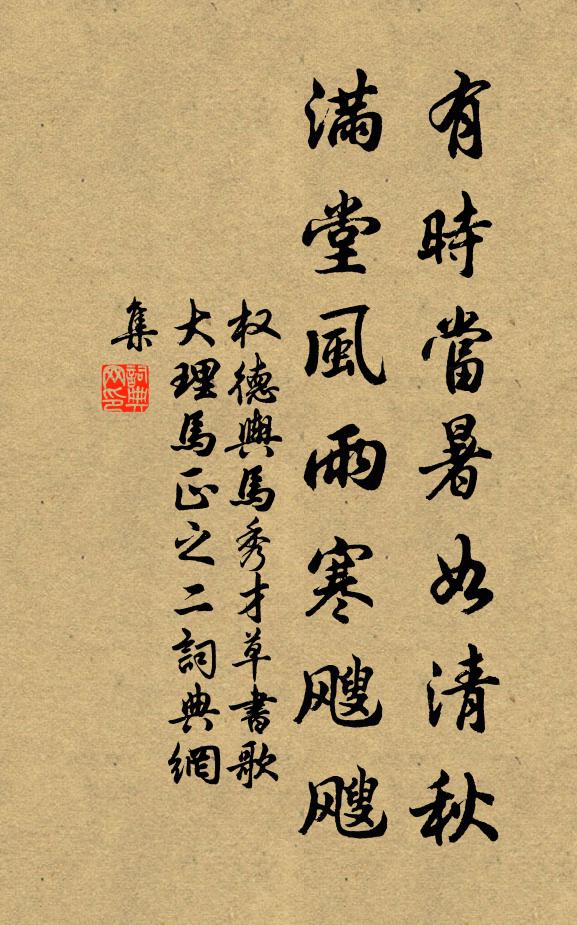 有時當暑如清秋
滿堂風雨寒颼颼
权德輿馬秀才草書歌
大理馬正之二詞典網
集
詞典
网印